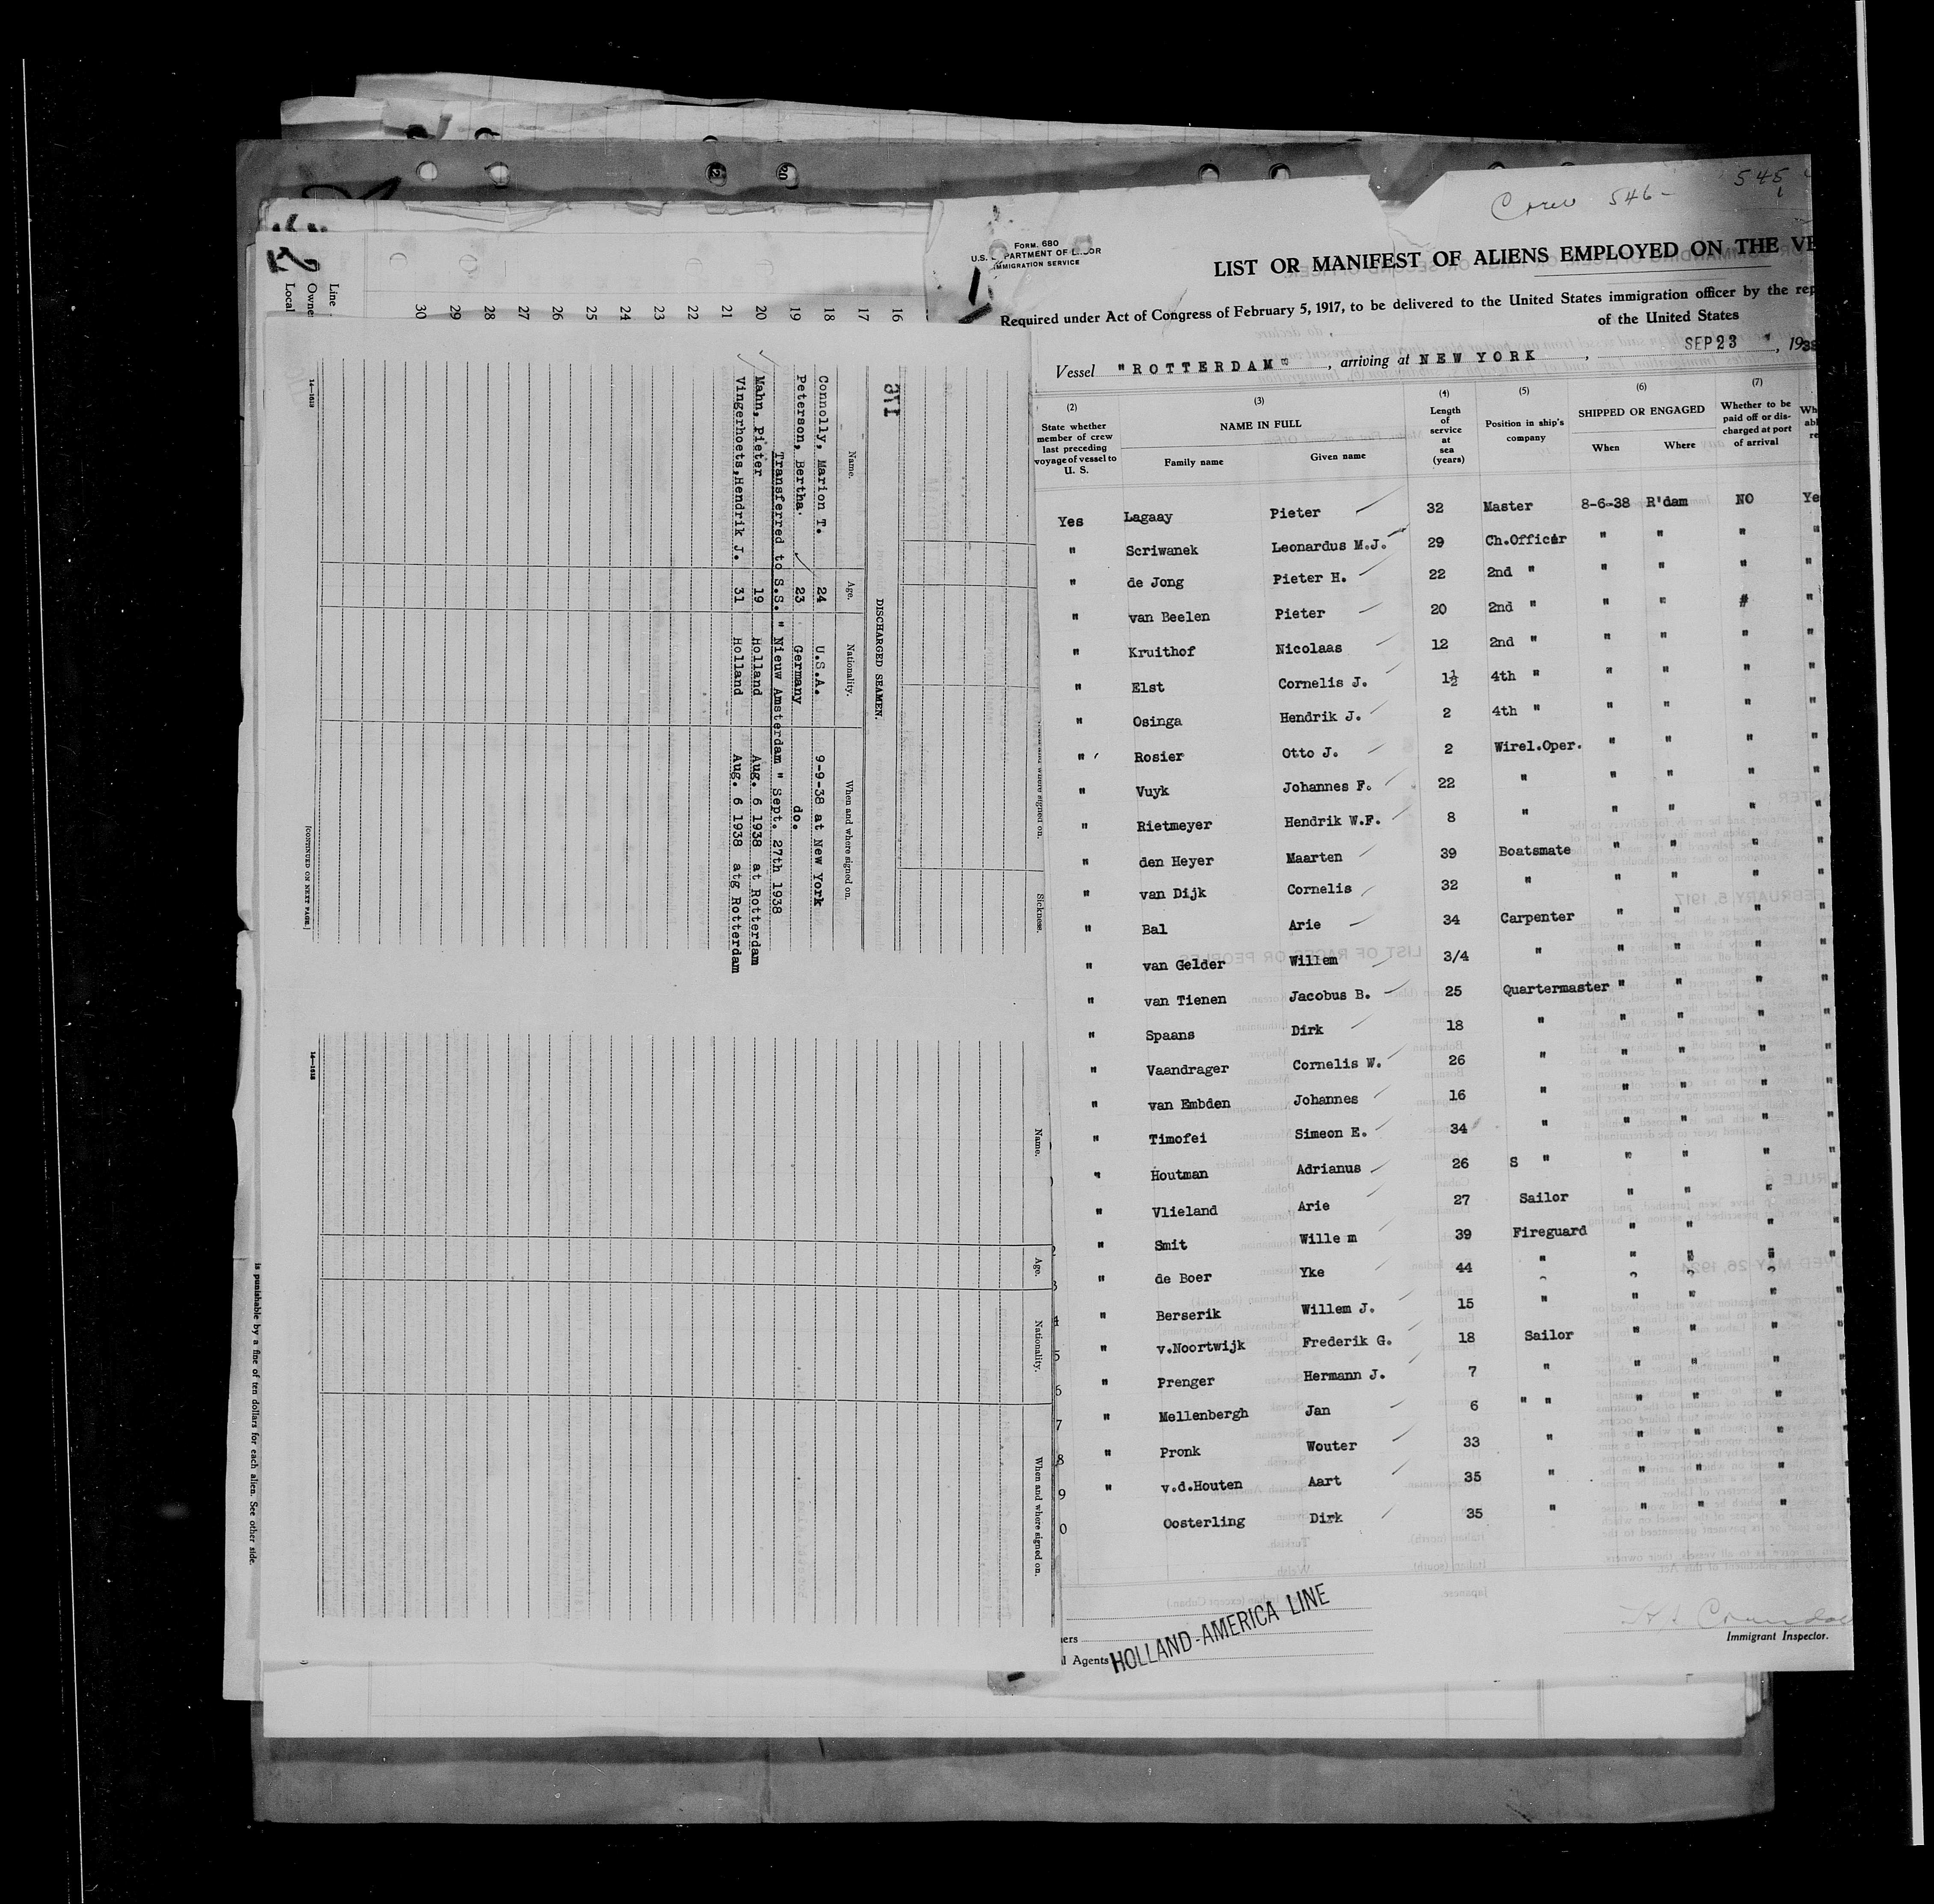 Crew 546-
545
FORM. 680
U.S. DEPARTMENT OF LABOR
IMMIGRATION SERVICE
LIST OR MANIFEST OF ALIENS EMPLOYED ON THE VE
Required under Act of Congress of February 5, 1917, to be delivered to the United States immigration officer by the rep
of the United States
Vessel "ROTTERDAM", arriving at NEW YORK, SEP 23, 1938
(2) (3) (4) (5) (6) (7)
State whether member of crew last preceding voyage of vessel to U. S.
NAME IN FULL
Family name Given name
Length of service at sea (years)
Position in ship's company
SHIPPED OR ENGAGED
When Where
Whether to be paid off or discharged at port of arrival
Yes Lagaay Pieter 32 Master 8-6-38 R'dam NO Ye
" Scriwanek Leonardus M.J. 29 Ch.Officer " " " "
" de Jong Pieter H. 22 2nd " " " " "
" van Beelen Pieter 20 2nd " " " # "
" Kruithof Nicolaas 12 2nd " " " " "
" Elst Cornelis J. 1½ 4th " " " " "
" Osinga Hendrik J. 2 4th " " " " "
" Rosier Otto J. 2 Wirel.Oper. " " " "
" Vuyk Johannes F. 22 " " " " "
" Rietmeyer Hendrik W.F. 8 " " " " "
" den Heyer Maarten 39 Boatsmate " " " "
" van Dijk Cornelis 32 " " " " "
" Bal Arie 34 Carpenter " " " "
" van Gelder Willem 3/4 " " " " "
" van Tienen Jacobus B. 25 Quartermaster " " " "
" Spaans Dirk 18 " " " " "
" Vaandrager Cornelis W. 26 " " " " "
" van Embden Johannes 16 " " " " "
" Timofei Simeon E. 34 " " " " "
" Houtman Adrianus 26 S " " " " "
" Vlieland Arie 27 Sailor " " " "
" Smit Wille m 39 Fireguard " " " "
" de Boer Yke 44 " " " " "
" Berserik Willem J. 15 " " " " "
" v.Noortwijk Frederik G. 18 Sailor " " " "
" Prenger Hermann J. 7 " " " " "
" Mellenbergh Jan 6 " " " " " "
" Pronk Wouter 33 " " " " "
" v.d.Houten Aart 35 " " " " "
Oosterling Dirk 35 " " " " "
ers
l Agents HOLLAND-AMERICA LINE
Immigrant Inspector.
Line
Owne
Local
16
17
18
19
20
21
22
23
24
25
26
27
28
29
30
Sickness.
DISCHARGED SEAMEN.
Name. Age. Nationality. When and where signed on.
Connolly, Marion T. 24 U.S.A. 9-9-38 at New York
Peterson, Bertha. 23 Germany do.
Transferred to S.S. " Nieuw Amsterdam " Sept. 27th 1938
Mahn, Pieter 19 Holland Aug. 6 1938 at Rotterdam
Vingerhoets, Hendrik J. 31 Holland Aug. 6 1938 atg Rotterdam
[CONTINUED ON NEXT PAGE.]
Name. Age. Nationality. When and where signed on.
is punishable by a fine of ten dollars for each alien. See other side.